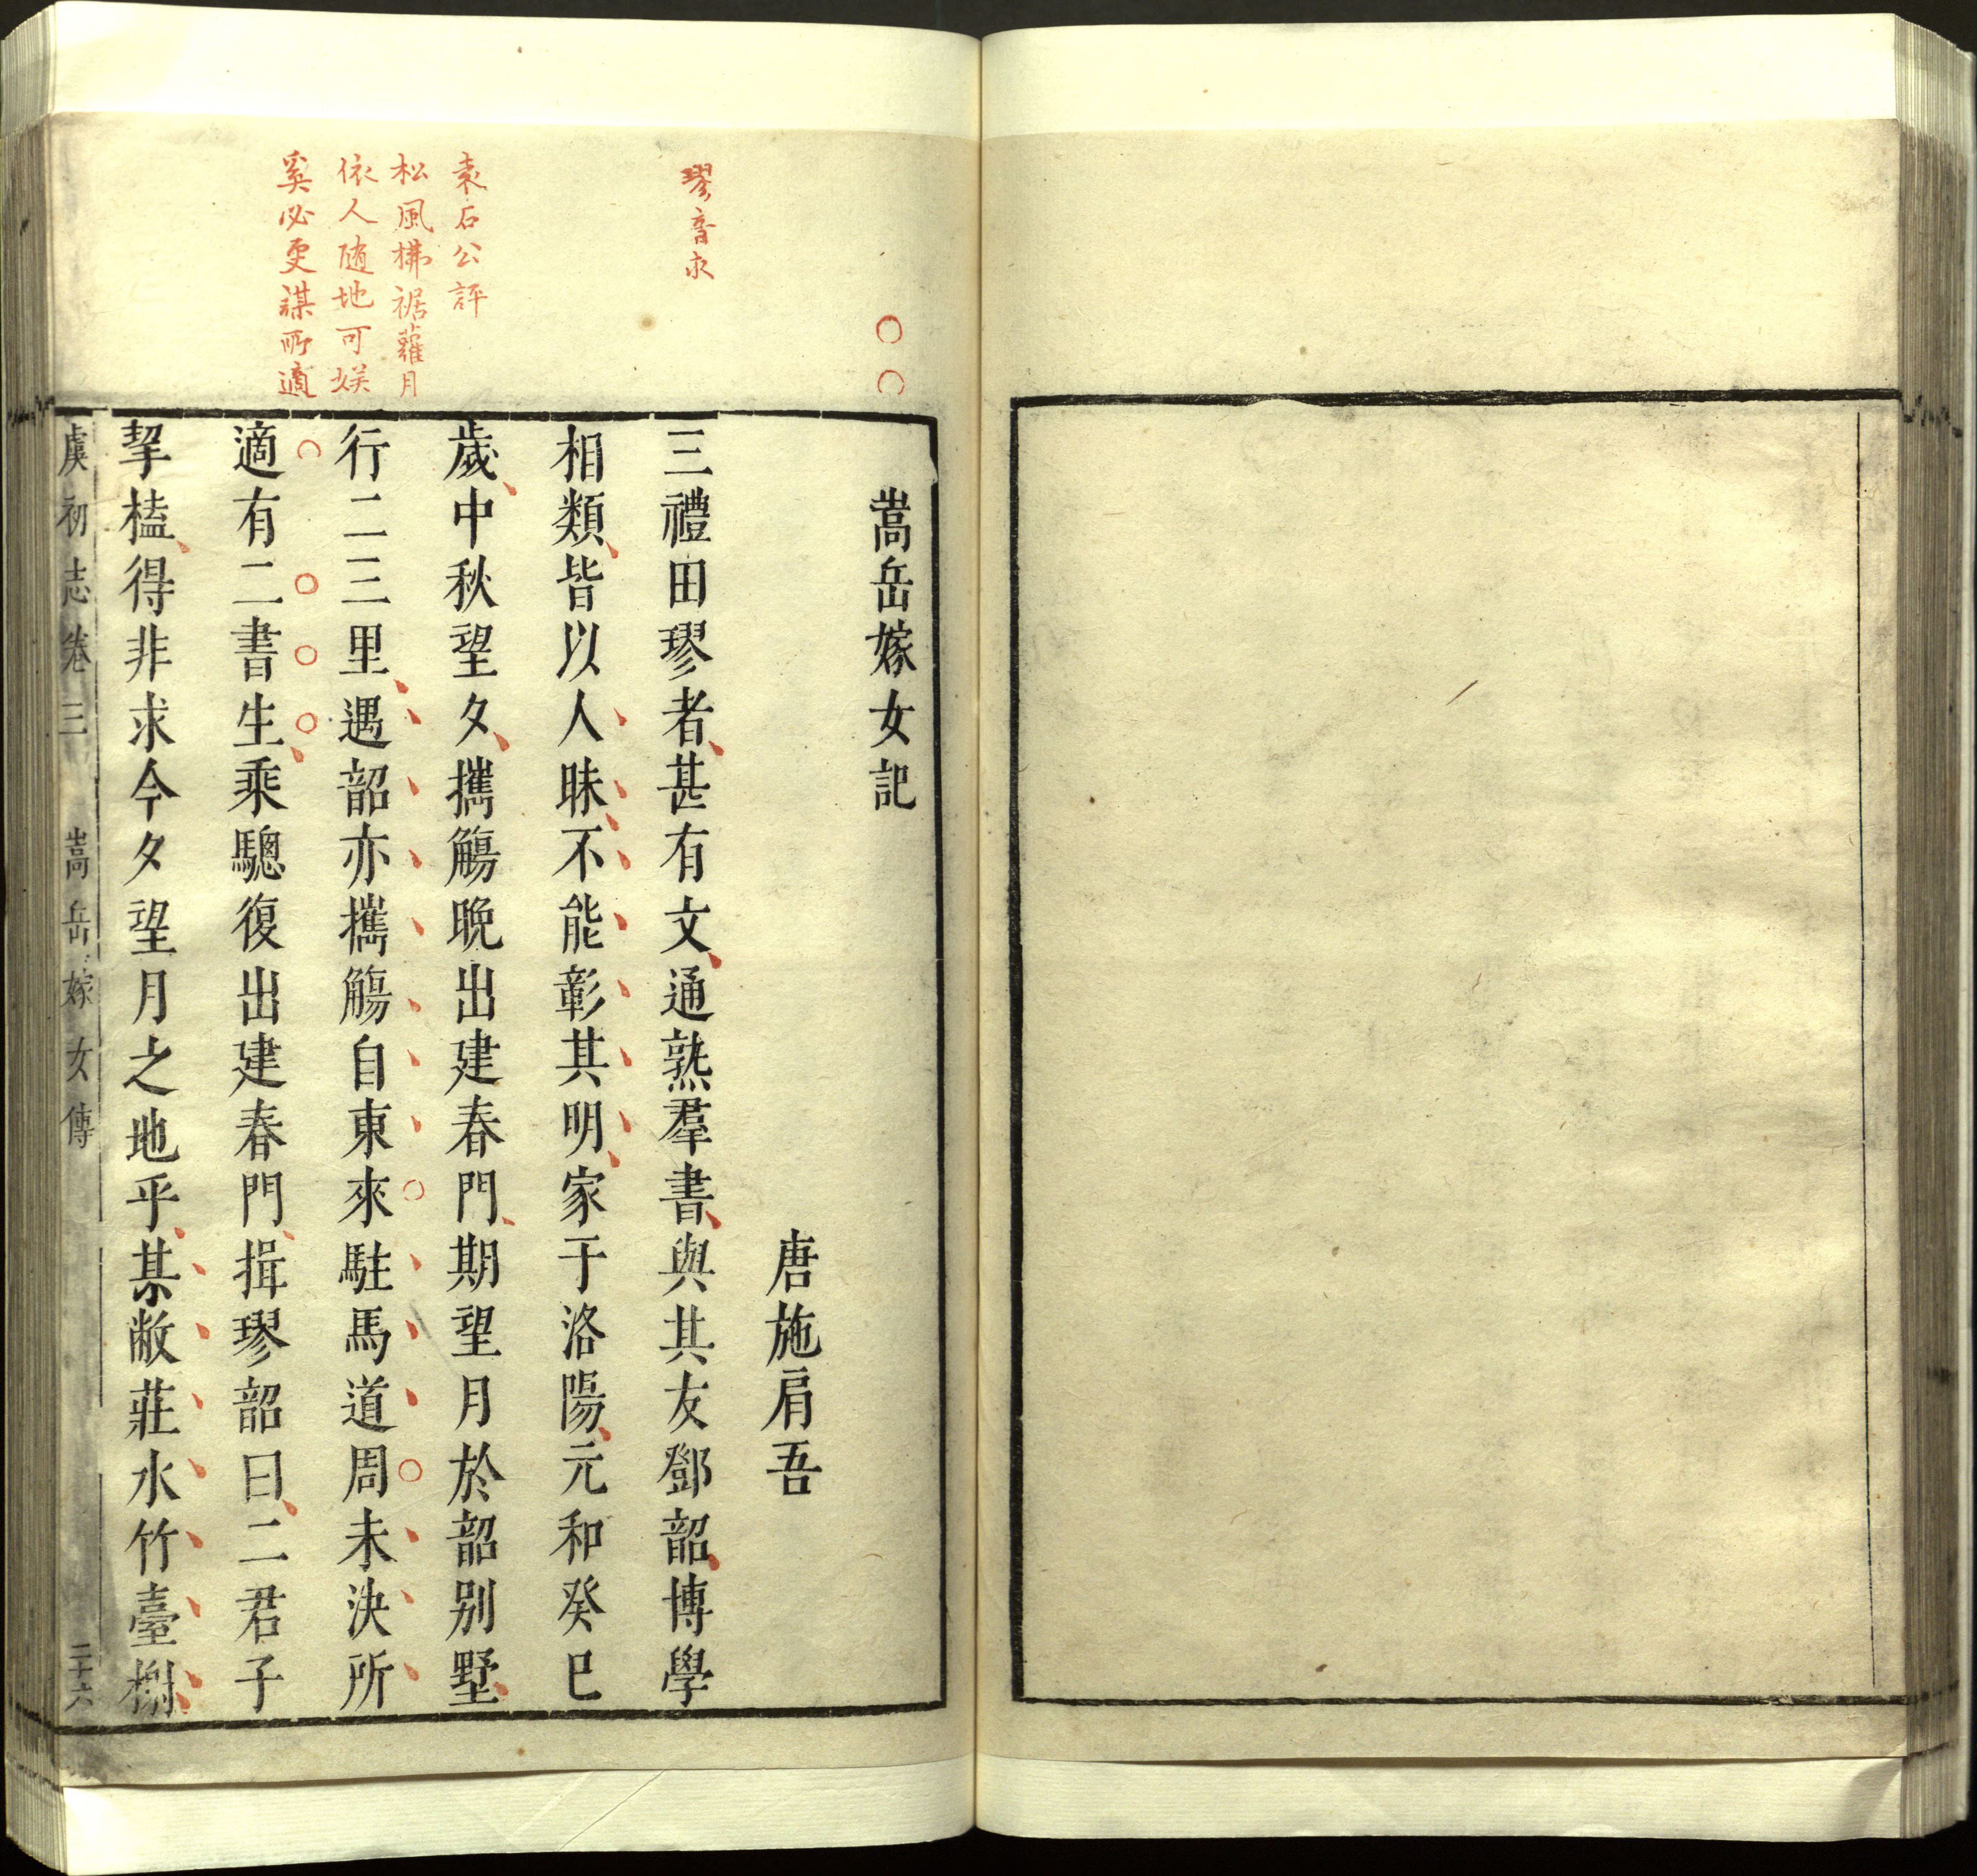 嵩岳嫁女記
唐施肩吾
三禮田璆者甚有文通熟羣書與其友鄧韶博學
相類皆以人昧不能彰其明家于洛陽元和癸巳
歲中秋望夕攜觴晚出建春門期望月於韶别墅
行二三里遇韶亦攜觴自東來駐馬道周未決所
適有二書生乘驄復出建春門揖璆韶曰二君子
挈榼得非求今夕望月之地乎某敝莊水竹臺榭
虞初志卷三 嵩岳嫁女傳 二十六
璆音求
袁石公評
松風拂裾蘿月
依人随地可娱
奚必更謀所適